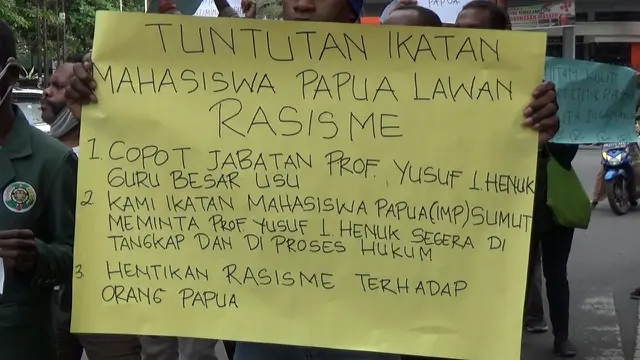 TUNTUTAN IKATAN
MAHASISWA PAPUA LAWAN
RASISME
1. COPOT JABATAN PROF. YUSUF 1. HENUK
GURU BESAR USU
2. KAMI IKATAN MAHASISWA PAPUA (IMP) SUMUT
MEMINTA PROF YUSUF 1. HENUK SEGERA DI
TANGKAP DAN DI PROSES HUKUM
3. HENTIKAN RASISME TERHADAP
ORANG PAPUA
PAPUA